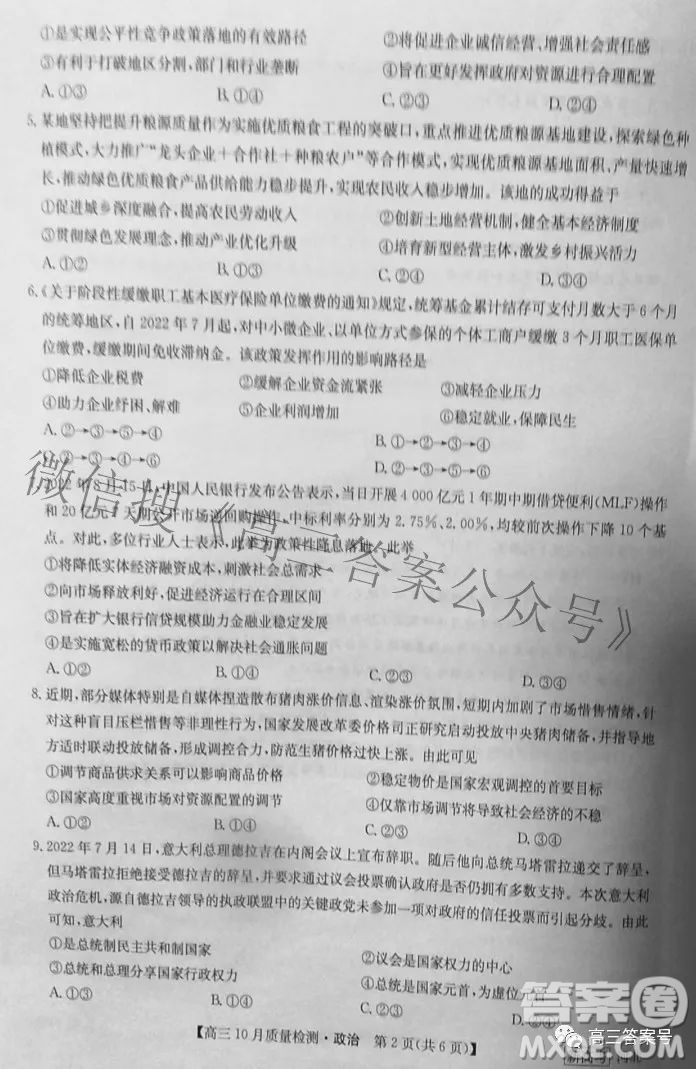 ①是实现公平性竞争政策落地的有效路径 ②将促进企业诚信经营、增强社会责任感
③有利于打破地区分割、部门和行业垄断 ④旨在更好发挥政府对资源进行合理配置
A.①③ B.①④ C.②③ D.②④
5.某地坚持把提升粮源质量作为实施优质粮食工程的突破口,重点推进优质粮源基地建设,探索绿色种
植模式,大力推广“龙头企业+合作社+种粮农户”等合作模式,实现优质粮源基地面积、产量快速增
长,推动绿色优质粮食产品供给能力稳步提升,实现农民收入稳步增加。该地的成功得益于
①促进城乡深度融合,提高农民劳动收入 ②创新土地经营机制,健全基本经济制度
③贯彻绿色发展理念,推动产业优化升级 ④培育新型经营主体,激发乡村振兴活力
A.①② B.①③ C.②④ D.③④
6.《关于阶段性缓缴职工基本医疗保险单位缴费的通知》规定,统筹基金累计结存可支付月数大于6个月
的统筹地区,自2022年7月起,对中小微企业、以单位方式参保的个体工商户缓缴3个月职工医保单
位缴费,缓缴期间免收滞纳金。该政策发挥作用的影响路径是
①降低企业税费 ②缓解企业资金流紧张 ③减轻企业压力
④助力企业纾困、解难 ⑤企业利润增加 ⑥稳定就业,保障民生
A.②→③→⑤→④ B.①→③→④→⑥
C.②→③→④→⑥ D.②→①→④→⑥
2022年8月15日,中国人民银行发布公告表示,当日开展4 000亿元1年期中期借贷便利(MLF)操作
和20亿元7天期公开市场逆回购操作,中标利率分别为2.75%、2.00%,均较前次操作下降10个基
点。对此,多位行业人士表示,此举为政策性降息落地。此举
①将降低实体经济融资成本,刺激社会总需求
②向市场释放利好,促进经济运行在合理区间
③旨在扩大银行信贷规模助力金融业稳定发展
④是实施宽松的货币政策以解决社会通胀问题
A.①② B.①④ C.②③ D.③④
8.近期,部分媒体特别是自媒体捏造散布猪肉涨价信息、渲染涨价氛围,短期内加剧了市场惜售情绪,针
对这种盲目压栏惜售等非理性行为,国家发展改革委价格司正研究启动投放中央猪肉储备,并指导地
方适时联动投放储备,形成调控合力,防范生猪价格过快上涨。由此可见
①调节商品供求关系可以影响商品价格 ②稳定物价是国家宏观调控的首要目标
③国家高度重视市场对资源配置的调节 ④仅靠市场调节将导致社会经济的不稳
A.①② B.①④ C.②③ D.③④
9.2022年7月14日,意大利总理德拉吉在内阁会议上宣布辞职。随后他向总统马塔雷拉递交了辞呈,
但马塔雷拉拒绝接受德拉吉的辞呈,并要求通过议会投票确认政府是否仍有多数议会支持。本次意大利
政治危机,源自德拉吉领导的执政联盟中的关键政党未参加一项对政府的信任投票而引起分歧。由此
可知,意大利
①是总统制民主共和制国家 ②议会是国家权力的中心
③总统和总理分享国家行政权力 ④总统是虚位元首
A.①② B.①③ C.②④ D.③④
【高三10月质量检测·政治 第2页(共6页)】
微信搜《高三答案公众号》
答案卷
高三答案号
MXQE.COM